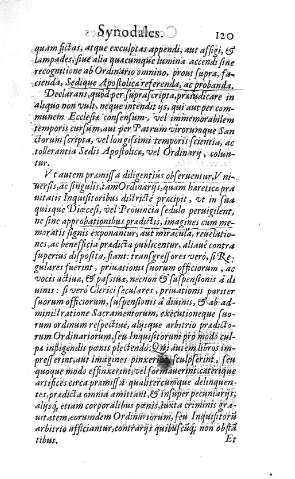 Synodales. 120
quam fictas, atque exculptas appendi, aut affigi, &
lampades, siue alia quacumque lumina accendi sine
recognitione ab Ordinario omnino, prout supra, fa-
cienda, Sedique Apostolica referenda, ac probanda.
Declarans, quòd per suprascripta, præiudicare in
aliquo non vult, neque intendit ys, qui aut per com-
munem Ecclesiæ consensum, vel immemorabilem
temporis cursum, aut per Patrum virorumque San
ctorum scripta, vel longissimi temporis scientia, ac
tollerantia Sedis Apostolicæ, vel Ordinarij, colun-
tur.
Vt autem præmissa diligentiùs obseruentur, Vni-
uersis, ac singulis, tam Ordinarijs, quam hæreticæ pra
uitatis Inquisitoribus districtè præcipit, vt in sua
quisque Diœcesi, vel Prouincia sedulò peruigilent,
ne sine approbationibus prædictis, imagines cum me-
moratis signis exponantur, aut miracula, reuelatio-
nes, ac beneficia prædicta publicentur, aliaue contra
superius disposita, fiant: transgressores verò, si Re-
gulares fuerint, priuationis suorum officiorum, ac
vocis actiuæ, & passiuæ, necnon & suspensionis à di
uinis: si verò Clerici seculares, priuationis pariter
suorum officiorum, suspensionis à diuinis, & ab ad-
ministratione Sacramentorum, executioneque suo-
rum ordinum respectiuè, aliisque arbitrio prædicto-
rum Ordinariorum, seu Inquisitorum pro modo cul-
pæ infligendis pœnis plectendo. Qui autem libros im-
presserint, aut imagines pinxerint, sculpserint, seu
quoquo modo effinxerint, vel formauerint, cæterique
artifices circa præmissa qualitercumque delinquen-
tes, prædicta omnia amittant, & insuper pecuniarijs,
alijsq, etiam corporalibus pœnis, iuxta criminis gra-
uitatem, eorumdem Ordinariorum, seu Inquisitorū
arbitrio afficiantur, contrarijs quibuscūq, non obstā
tibus. Et